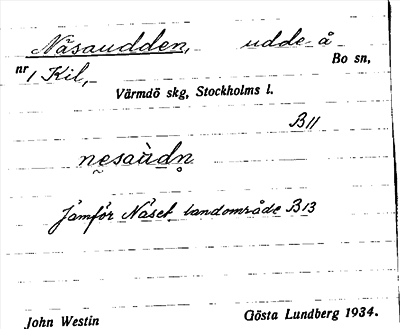 Näsaudden, udde å
nr 1 Kil, Bo sn,
Värmdö skg, Stockholms l.
B11
nesaùdn̥
Jämför Näset landområde B13
John Westin Gösta Lundberg 1934.